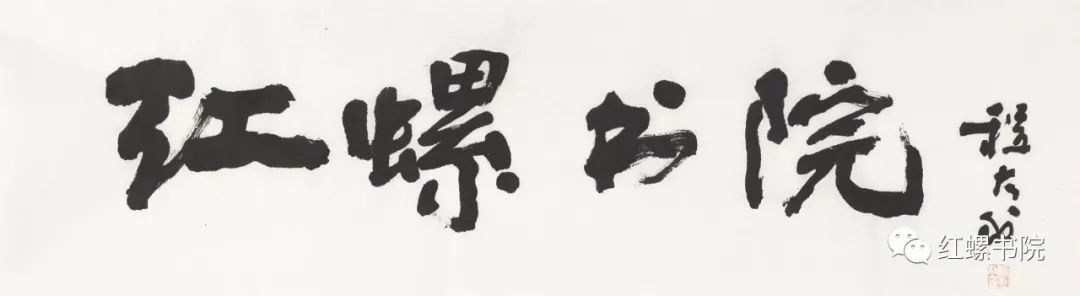 红螺书院
程大利
红螺书院